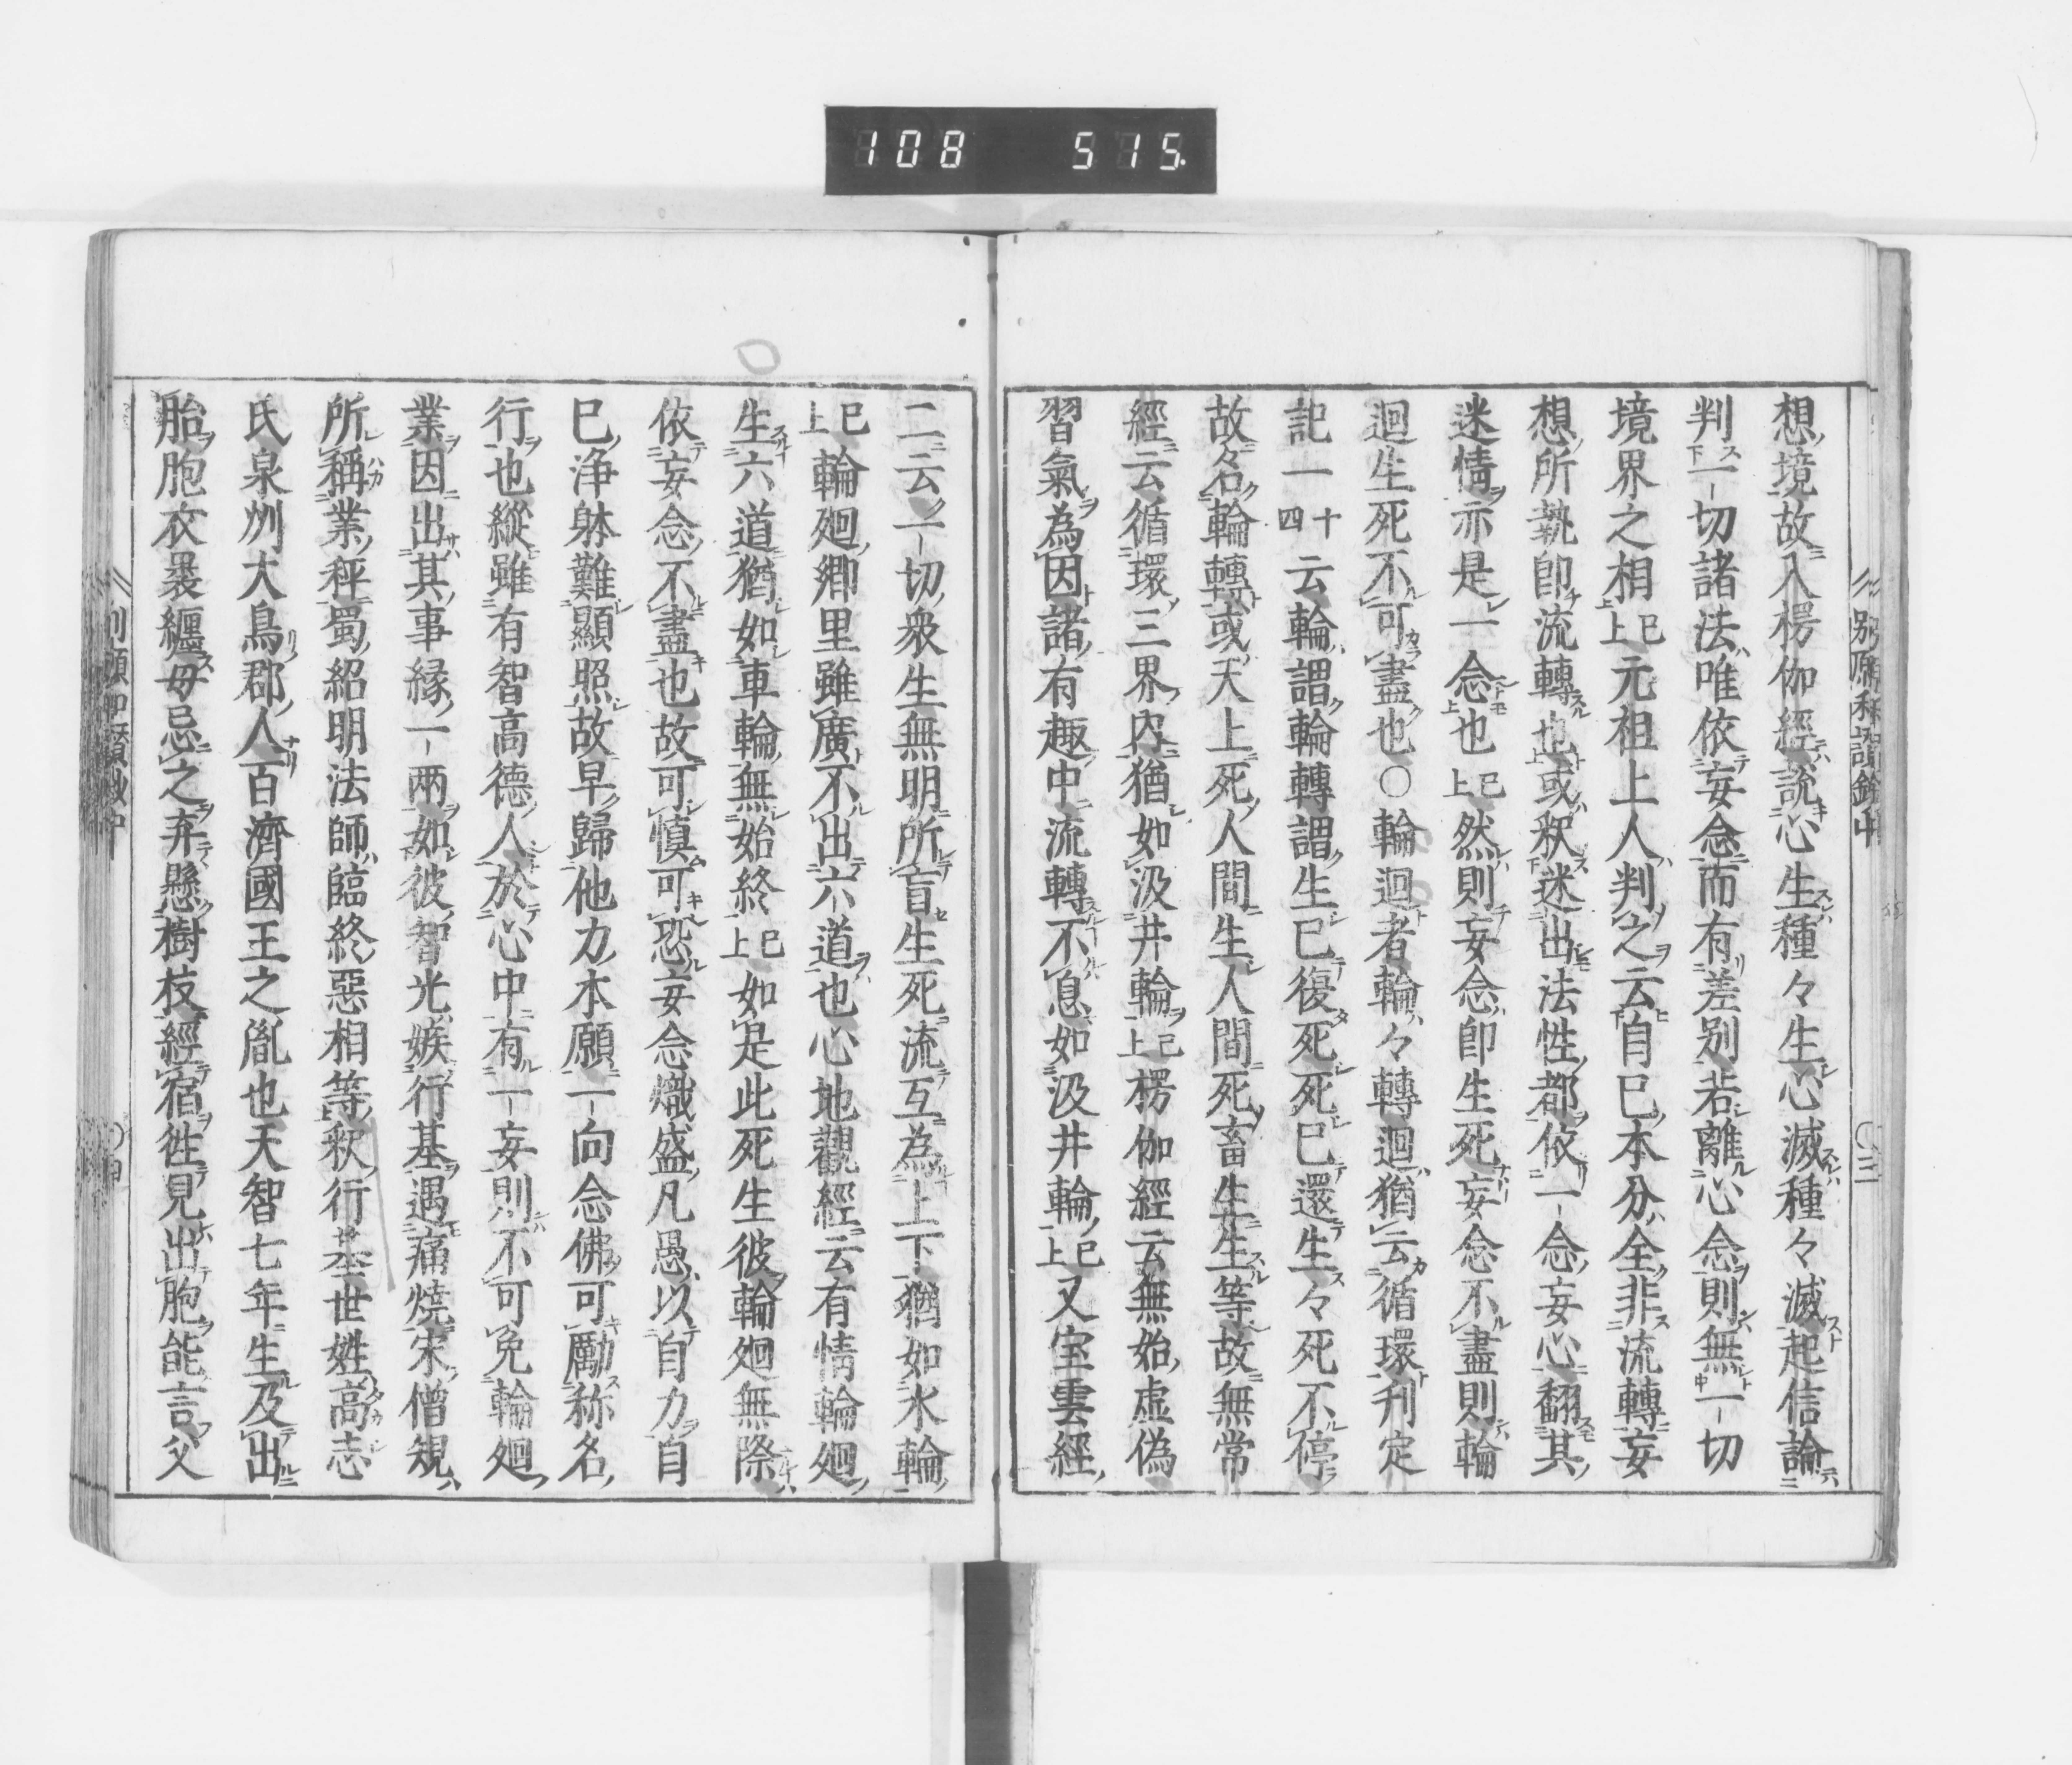 108 515.
別願和讃鈔中
〇三
想境故入楞伽經說心生種々生心滅種々滅起信論
判一切諸法唯依妄念而有差別若離心念則無一切
境界之相已上元祖上人判之云自已本分全非流轉妄
想所執即流轉也或釈迷出法性都依一念妄心翻其
迷情亦是一念也已上然則妄念即生死妄念不盡則輪
迴生死不可盡也〇輪迴者輪々轉迴猶云循環刋定
記一十四云輪謂輪轉謂生已復死死已還生々死不停
故名輪轉或天上死人間生人間死畜生生等故無常
經云循環三界內猶如汲井輪已上楞伽經云無始虛偽
習氣為因諸有趣中流轉不息如汲井輪已上又宝雲經
二云一切衆生無明所盲生死流互為上下猶如水輪
已上輪廻郷里雖廣不出六道也心地觀經云有情輪廻
生六道猶如車輪無始終已上如是此死生彼輪廻無際
依妄念不盡也故可慎可恐妄念熾盛凡愚以自力自
已浄躰難顯照故早歸他力本願一向念佛可勵称名
行也縱雖有智高德人於心中有一妄則不可免輪廻
業因出其事縁一兩如彼智光嫉行基遇痛焼宋僧規
所稱業秤蜀紹明法師臨終惡相等釈行基世姓高志
氏泉州大鳥郡人百濟國王之胤也天智七年生及出
胎胞衣褁纒母忌之弃懸樹枝經宿徃見出胞能言父